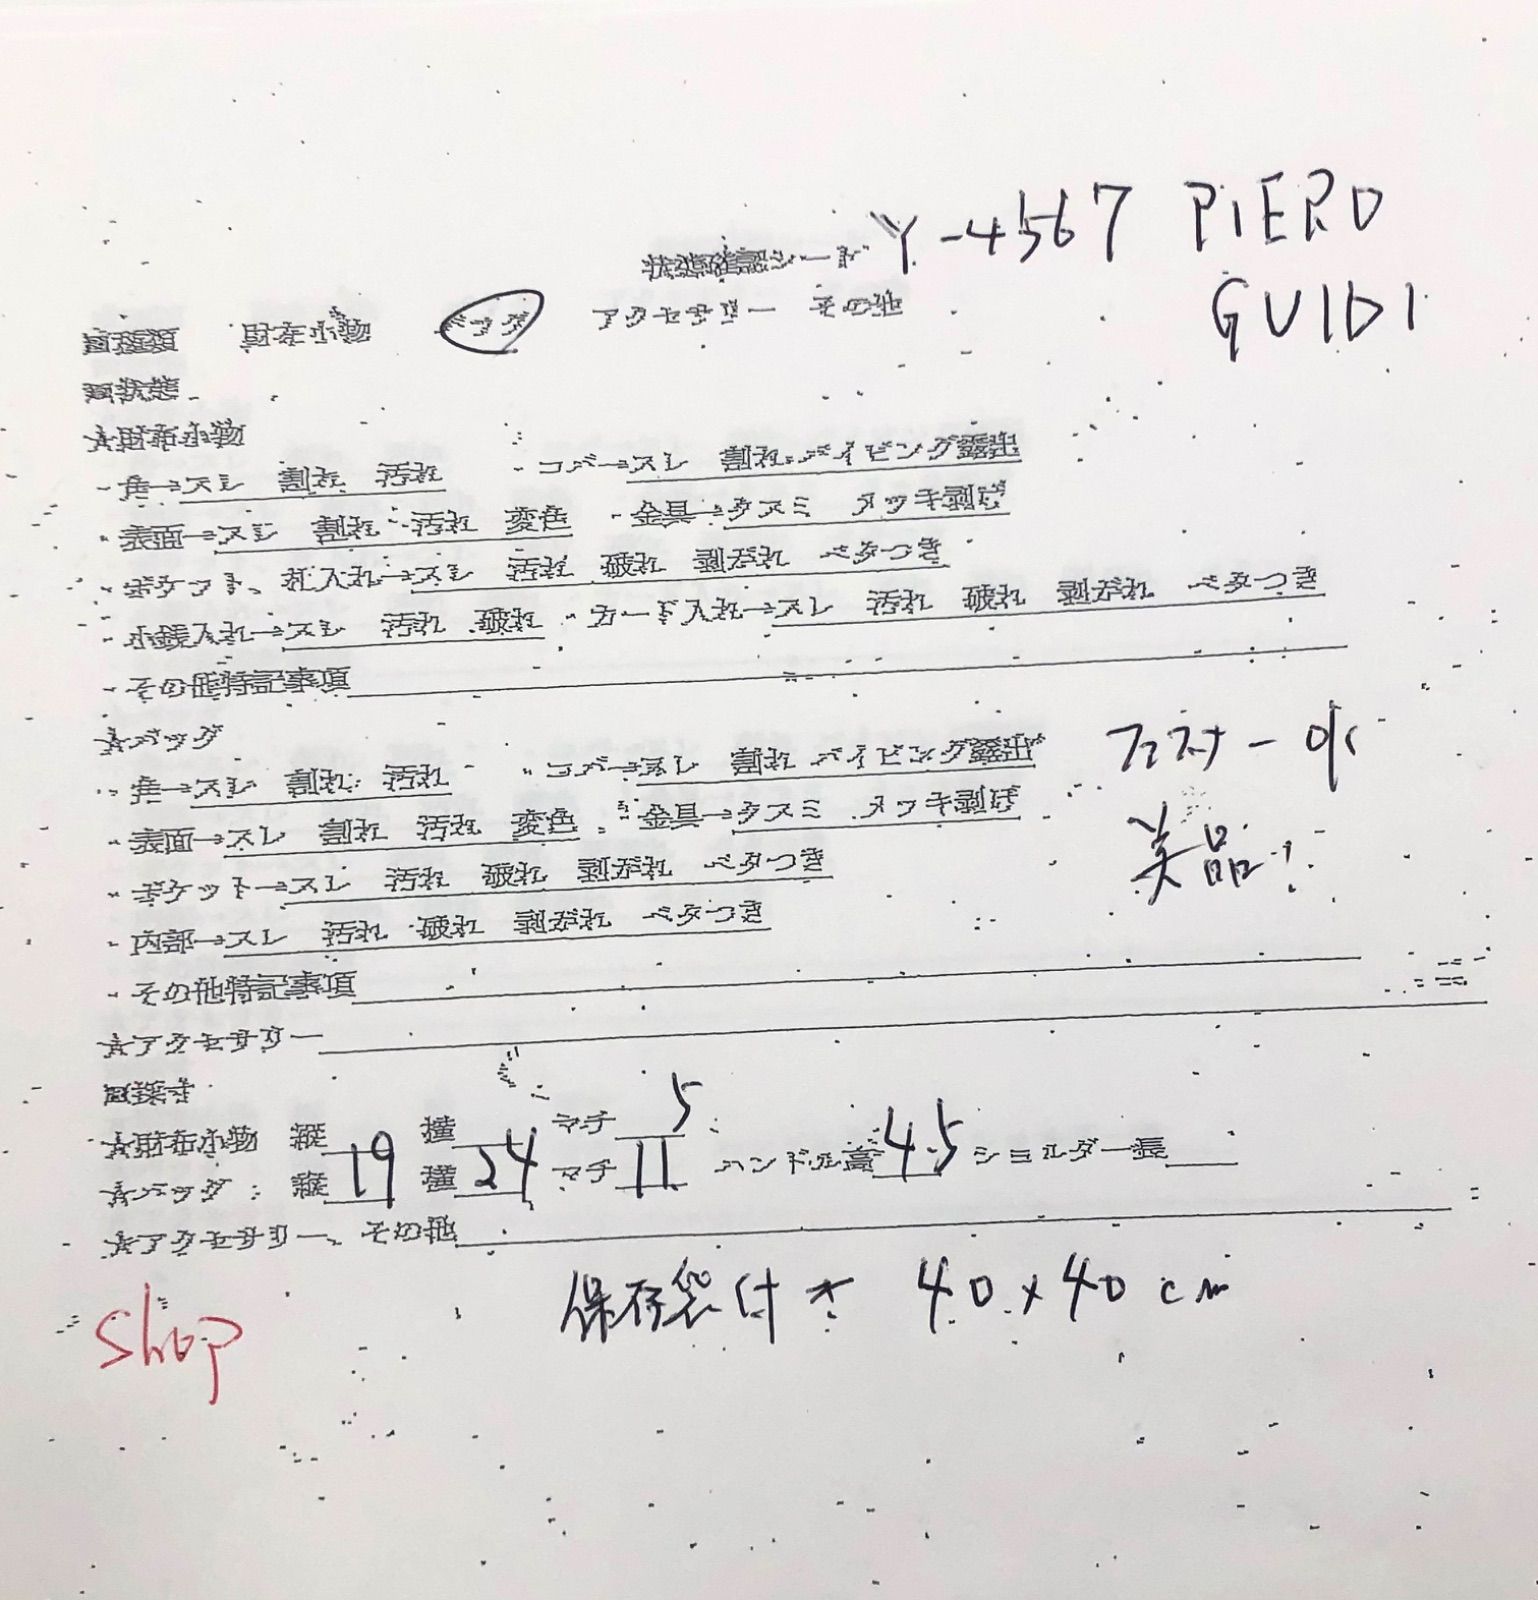 状態確認シート Y-4567 PIERO
GUIDI
■種類 財布小物 バッグ アクセサリー その他
■状態
☆財布小物
・角→スレ 割れ 汚れ ・コバ→スレ 割れ パイピング露出
・表面→スレ 割れ 汚れ 変色 ・金具→クスミ メッキ剥げ
・ポケット、札入れ→スレ 汚れ 破れ 剥がれ ベタつき
・小銭入れ→スレ 汚れ 破れ ・カード入れ→スレ 汚れ 破れ 剥がれ ベタつき
・その他特記事項
☆バッグ
・角→スレ 割れ 汚れ ・コバ→スレ 割れ パイピング露出 ファスナー OK
・表面→スレ 割れ 汚れ 変色 ・金具→クスミ メッキ剥げ 美品!
・ポケット→スレ 汚れ 破れ 剥がれ ベタつき
・内部→スレ 汚れ 破れ 剥がれ ベタつき
・その他特記事項
☆アクセサリー
■採寸
☆財布小物 縦 横 マチ 5
☆バッグ : 縦 19 横 24 マチ 11 ハンドル高 4.5 ショルダー長
☆アクセサリー、その他
保存袋付き 40×40cm
shop